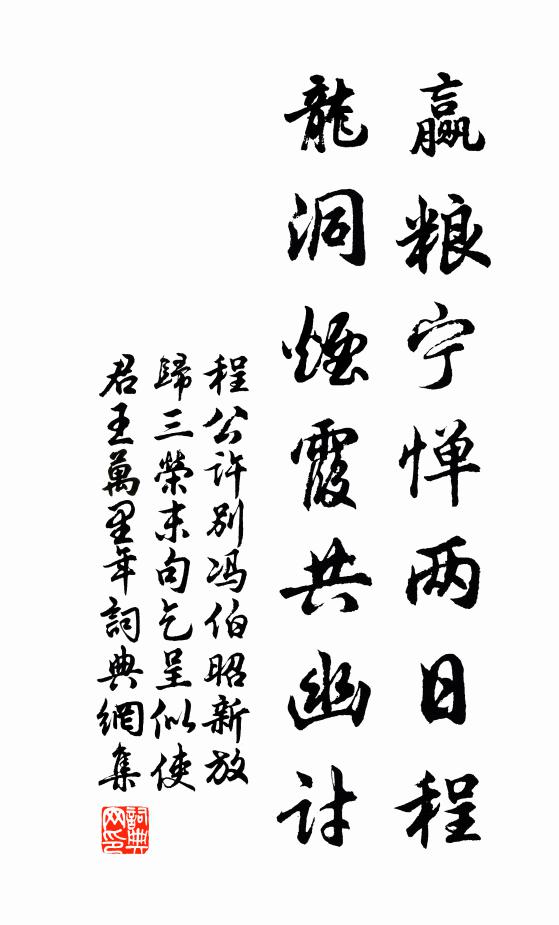 赢粮宁惮两日程
龍洞煙霞共幽討
程公许别冯伯昭新放
歸三榮末句乞呈似使
君王萬里年詞典網集
詞典
网印